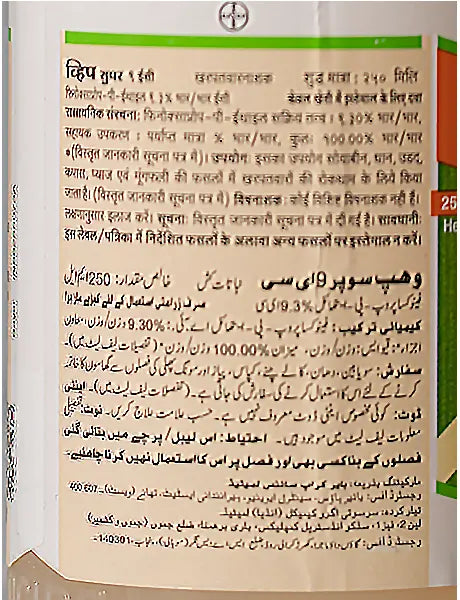 व्हिप सुपर ९ ईसी खरपतवारनाशक शुद्ध मात्रा : २५० मिलि
फिनोक्साप्रोप-पी-ईथाइल ९.३% भार/भार ईसी केवल खेती में इस्तेमाल के लिए दवा
रासायनिक संरचना: फिनोक्साप्रोप-पी-ईथाइल सक्रिय तत्व : ९.३०% भार/भार,
सहायक उपकरण : पर्याप्त मात्रा % भार/भार, कुल: 100.00% भार/भार
*(विस्तृत जानकारी सूचना पत्र में)। उपयोग: इसका उपयोग सोयाबीन, धान, उड़द,
कपास, प्याज एवं मूंगफली की फसलों में खरपतवारों की रोकथाम के लिये किया
जाता है। (विस्तृत जानकारी सूचना पत्र में) विषनाशक: कोई विशिष्ट विषनाशक नहीं है।
लक्षणानुसार इलाज करें। सूचना: विस्तृत जानकारी सूचना पत्र में दी गई है। सावधानी:
इस लेबल/पत्रिका में निर्देशित फसलों के अलावा अन्य फसलों पर इस्तेमाल न करें।
وهپ سوپر 9 ای سی نباتات کش خالص مقدار: 250 ایم ایل
فینوکساپروپ-پی-اتھائل 9.3% ای سی صرف زراعتی استعمال کے لئے
کیمیائی ترکیب: فینوکساپروپ-پی-اتھائل اے۔آئی۔: 9.30% وزن/وزن، معاون
اجزاء: کیو ایس: وزن/وزن، میزان 100.00% وزن/وزن* (تفصیلات لیف لیٹ میں)۔
سفارش: سویابین، دھان، کالے چنے، کپاس، پیاز اور مونگ پھلی کی فصلوں سے گھاسوں کا خاتمہ
کرنے کے لئے اس کا استعمال کرنے کی سفارش کی جاتی ہے۔ (تفصیلات لیف لیٹ میں)۔ اینٹی
ڈوٹ: کوئی مخصوص اینٹی ڈوٹ معروف نہیں ہے۔ حسب علامت علاج کریں۔ نوٹ: تفصیلی
معلومات لیف لیٹ میں موجود ہیں۔ احتیاط: اس لیبل/پرچے میں بتائی گئی
فصلوں کے بنا کسی بھی اور فصل پر اس کا استعمال نہیں کرنا چاہئیے۔
مارکیٹنگ بذریعہ: بایر کراپ سائنس لمیٹیڈ
رجسٹرڈ آفس: بایر ہاؤس، سینٹرل ایوینیو، ہیرانندانی ایسٹیٹ، تھانے (ویسٹ)-400 607۔
تیار کردہ: سرسوتی اگرو کیمیکل (انڈیا) لمیٹیڈ
لین 2، فیز 1، سڈکو انڈسٹریل کمپلیکس، باری برہمنا، ضلع جموں (جموں و کشمیر)
رجسٹرڈ آفس: پنجاب-140301
25
He